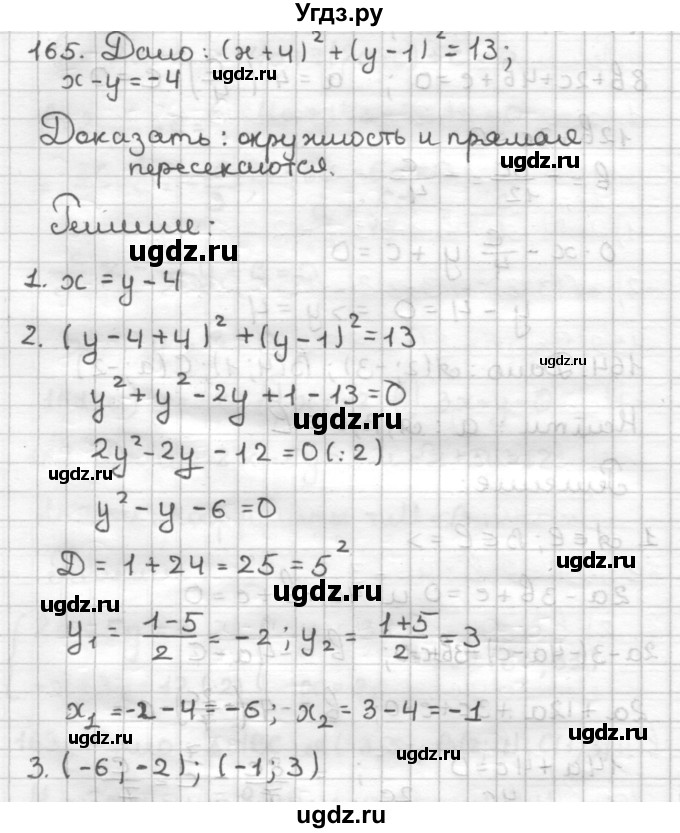 Угдз.ру
165. Дано: (x+4)² + (y-1)² = 13;
x-y=-4
ugdz.ru
Доказать: окружность и прямая
ugdz.ru
пересекаются.
Решение:
ugdz.ru
1. x = y - 4
2. (y-4+4)² + (y-1)² = 13
ugdz.ru
y² + y² - 2y + 1 - 13 = 0
ugdz.ru
2y² - 2y - 12 = 0 (:2)
ugdz.ru
y² - y - 6 = 0
D = 1 + 24 = 25 = 5²
ugdz.ru
ugdz.ru
y₁ = (1-5)/2 = -2; y₂ = (1+5)/2 = 3
x₁ = -2 - 4 = -6; x₂ = 3 - 4 = -1
ugdz.ru
ugdz.ru
ugdz.ru
3. (-6; -2); (-1; 3)
ugdz.ru